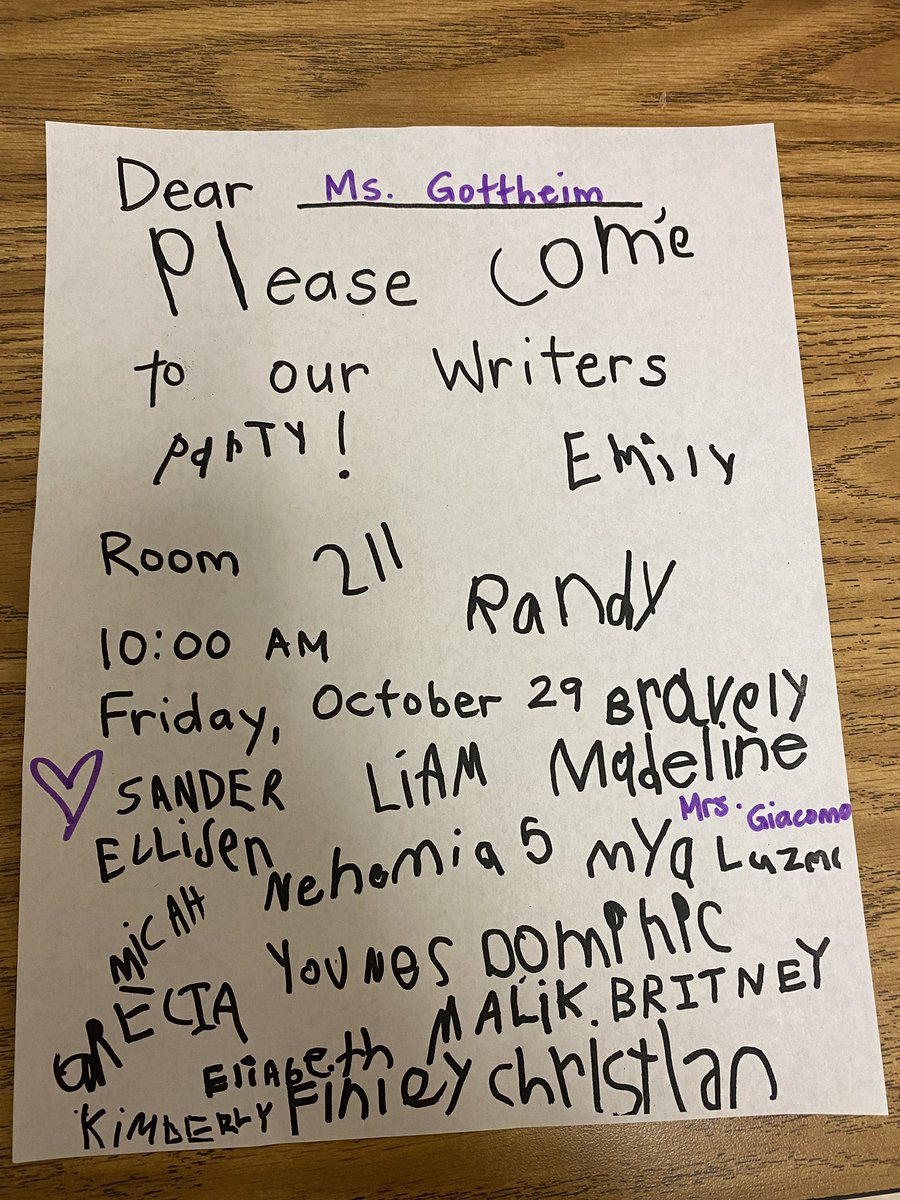 Dear Ms. Gottheim
Please come
to our Writers
party!
Emily
Room 211
Randy
10:00 AM
Friday, October 29
Bravely
SANDER LiAM Madeline
Mrs. Giacomo
ELLiSen Nehomia 5 mya Luzma
MiCAH YOUNES DOMiNiC
GRECIA MALiK. BRITNEY
EliABeth
KiMBERLY FiNley christian